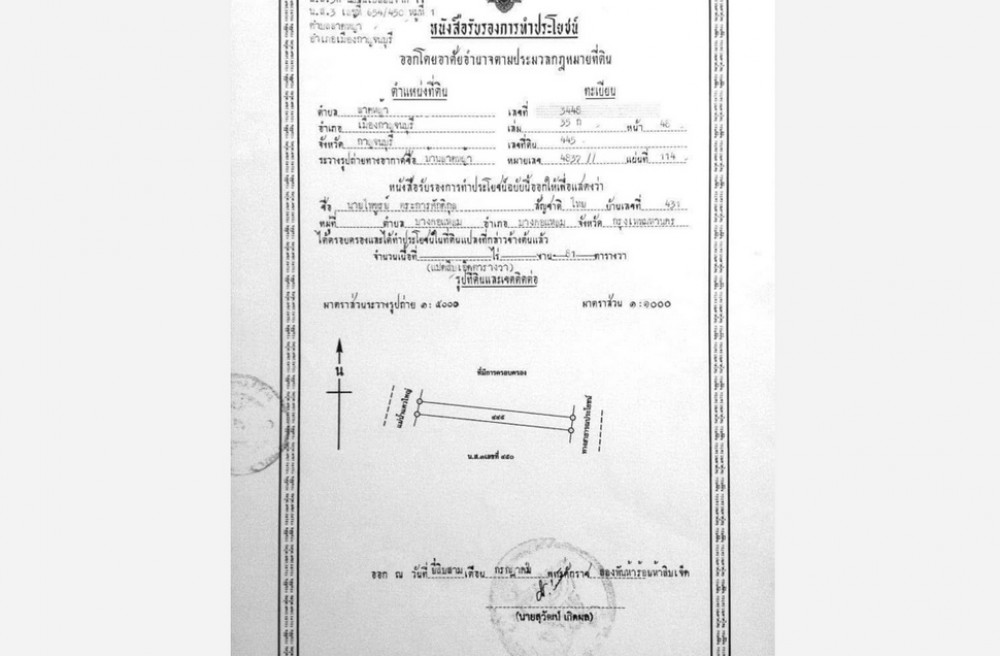 น.ส.3 เลขที่ 654/450 หมู่ที่ 1
อำเภอเมืองกาญจนบุรี
หนังสือรับรองการทำประโยชน์
ออกโดยอาศัยอำนาจตามประมวลกฎหมายที่ดิน
ตำแหน่งที่ดิน ทะเบียน
ตำบล ลาดหญ้า เลขที่ 3446
อำเภอ เมืองกาญจนบุรี เล่ม 35 ก หน้า 46
จังหวัด กาญจนบุรี เลขที่ดิน 445
ระวางรูปถ่ายทางอากาศชื่อ บ้านลาดหญ้า หมายเลข 4837 II แผ่นที่ 114
หนังสือรับรองการทำประโยชน์ฉบับนี้ออกให้เพื่อแสดงว่า
ชื่อ นาย สัญชาติ ไทย บ้านเลขที่
หมู่ที่ ตำบล บางคอแหลม อำเภอ บางคอแหลม จังหวัด กรุงเทพมหานคร
ได้ครอบครองและได้ทำประโยชน์ในที่ดินแปลงที่กล่าวข้างต้นแล้ว
จำนวนเนื้อที่ ไร่ งาน ตารางวา
(แปดสิบเจ็ดตารางวา)
รูปที่ดินและเขตติดต่อ
มาตราส่วนระวางรูปถ่าย ๑: ๕๐๐๐ มาตราส่วน ๑:๑๐๐๐
น
ที่มีการครอบครอง
แม่น้ำแควใหญ่
๔๔๕
ทางสาธารณประโยชน์
น.ส.๓เลขที่ ๔๕๐
ออก ณ วันที่ ยี่สิบสาม เดือน กรกฎาคม พุทธศักราช สองพันห้าร้อยห้าสิบเจ็ด
(นายสุวัฒน์ เกิดผล)